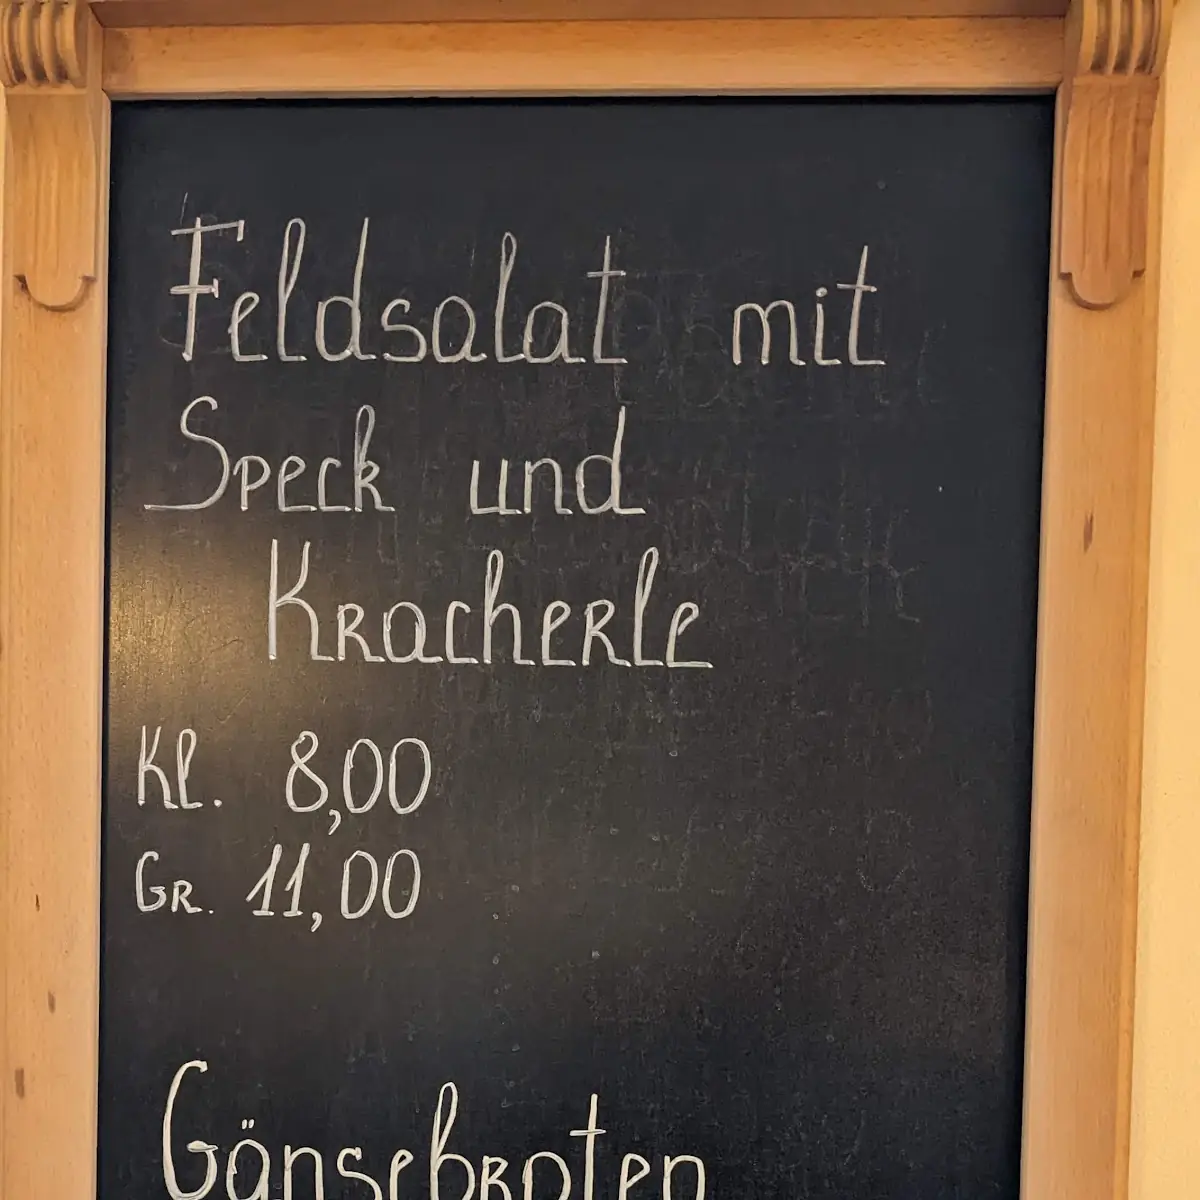 Feldsalat mit
Speck und
Kracherle
Kl. 8,00
Gr. 11,00
Gänsebroten